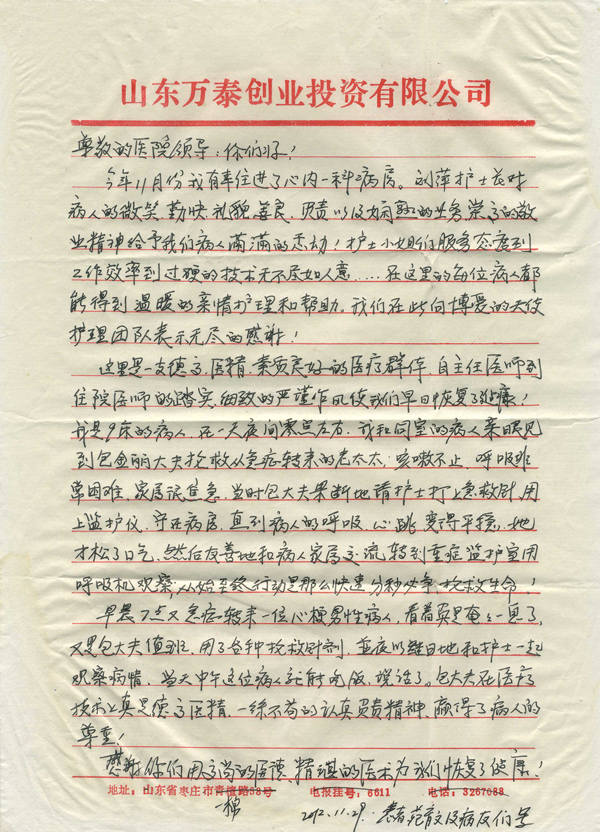 山东万泰创业投资有限公司
尊敬的医院领导：你们好！
今年11月份我有幸住进了心内一科2病房。刘萍护士长对
病人的微笑、勤快、礼貌、善良、负责以及为娴熟的业务崇高的敬
业精神给予我们病人满满的感动！护士小姐们服务态度到
工作效率到过硬的技术无不尽如人意……在这里的每位病人都
能得到温暖的亲情护理和帮助。我们在此向博爱的天使
护理团队表示无尽的感谢！
这里是一支德高、医精、素质良好的医疗群体，自主任医师到
住院医师的踏实、细致的严谨作风使我们早日恢复了健康！
我是9床的病人，在一天夜间零点左右，我和同室的病人亲眼见
到包金丽大夫抢救从急症转来的老太太；咳嗽不止，呼吸非
常困难，家属很焦急，当时包大夫果断地请护士打上急救针，用
上监护仪，守在病房，直到病人的呼吸、心跳变得平稳，她
才松了口气，然后友善地和病人家属交流，转到重症监护室用
呼吸机观察，从始至终行动是那么快速分秒必争、抢救生命！
早晨7点又急症转来一位心梗男性病人，看着真是奄奄一息了，
又是包大夫值班，用了各种抢救针剂，并夜以继日地和护士一起
观察病情，当天中午这位病人就能吃饭、说话了。包大夫在医疗
技术上真是德高医精、一丝不苟的认真负责精神，赢得了病人的
尊重！
感谢你们用高尚的医德、精湛的医术为我们恢复了健康！
地址：山东省枣庄市青檀路58号 电报挂号：6611 电话：3267088
2012.11.29. 患者范 及病友们